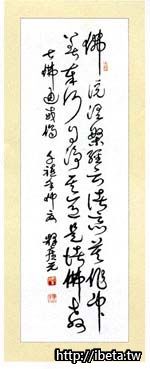 佛說涅槃經云諸惡莫作眾
善奉行自淨其意是諸佛教
七佛通戒偈 千禧年仲夏 釋廣元
http://ibeta.tw